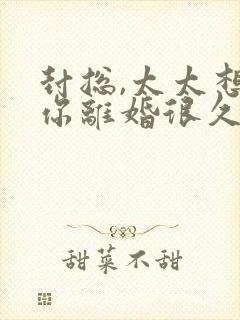 封总,太太想
你離婚很久
甜菜不甜